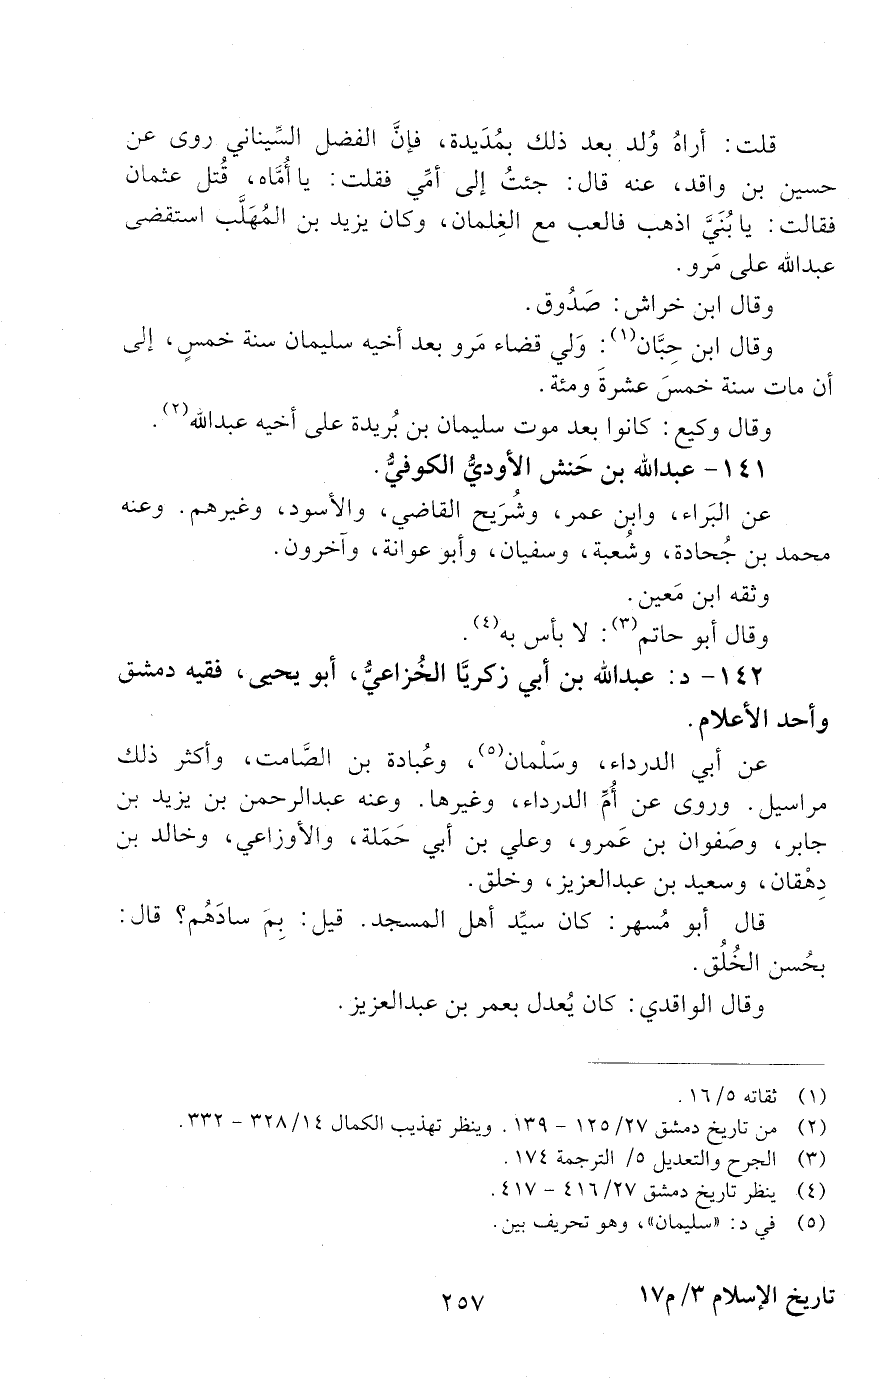 قلت: أراهُ وُلد بعد ذلك بمُدَيدة، فإنَّ الفضل السِّيناني روى عن
حسين بن واقد، عنه قال: جئتُ إلى أمِّي فقلت: يا أُمَّاه، قُتل عثمان
فقالت: يا بُنَيَّ اذهب فالعب مع الغِلمان، وكان يزيد بن المُهَلَّب استقضى
عبدالله على مَرو.
وقال ابن خراش: صَدُوق.
وقال ابن حِبَّان(١): وَلي قضاء مَرو بعد أخيه سليمان سنة خمسٍ، إلى
أن مات سنة خمسَ عشرةَ ومئة.
وقال وكيع: كانوا بعد موت سليمان بن بُريدة على أخيه عبدالله(٢).
١٤١- عبدالله بن حَنش الأوديُّ الكوفيُّ.
عن البَراء، وابن عمر، وشُرَيح القاضي، والأسود، وغيرهم. وعنه
محمد بن جُحادة، وشُعبة، وسفيان، وأبو عوانة، وآخرون.
وثقه ابن مَعين.
وقال أبو حاتم(٣): لا بأس به(٤).
١٤٢- د: عبدالله بن أبي زكريَّا الخُزاعيُّ، أبو يحيى، فقيه دمشق
وأحد الأعلام.
عن أبي الدرداء، وسَلْمان(٥)، وعُبادة بن الصَّامت، وأكثر ذلك
مراسيل. وروى عن أُمِّ الدرداء، وغيرها. وعنه عبدالرحمن بن يزيد بن
جابر، وصَفوان بن عَمرو، وعلي بن أبي حَمَلة، والأوزاعي، وخالد بن
دِهْقان، وسعيد بن عبدالعزيز، وخلق.
قال أبو مُسهر: كان سيِّد أهل المسجد. قيل: بِمَ سادَهُم؟ قال:
بحُسن الخُلُق.
وقال الواقدي: كان يُعدل بعمر بن عبدالعزيز.
(١) ثقاته ٥/ ١٦.
(٢) من تاريخ دمشق ٢٧/ ١٢٥ - ١٣٩. وينظر تهذيب الكمال ١٤/ ٣٢٨ - ٣٣٢.
(٣) الجرح والتعديل ٥/ الترجمة ١٧٤.
(٤) ينظر تاريخ دمشق ٢٧/ ٤١٦ - ٤١٧.
(٥) في د: «سليمان»، وهو تحريف بين.
تاريخ الإسلام ٣/ م١٧
٢٥٧